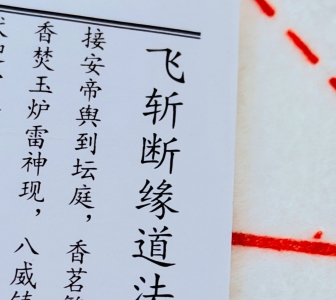 飞斩断缘道法
接安帝舆到坛庭，香茗
香焚玉炉雷神现，八威